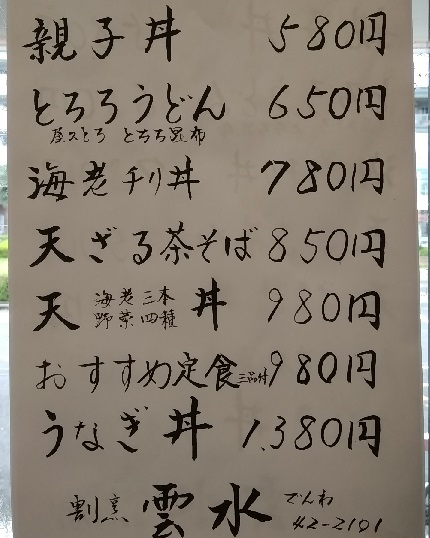 親子丼 580円
とろろうどん 650円
屋久とろ とろろ昆布
海老チリ丼 780円
天ざる茶そば 850円
天 海老三本 野菜四種 丼 980円
おすすめ定食 三品付 980円
うなぎ丼 1,380円
割烹 雲水 でんわ 42-2101